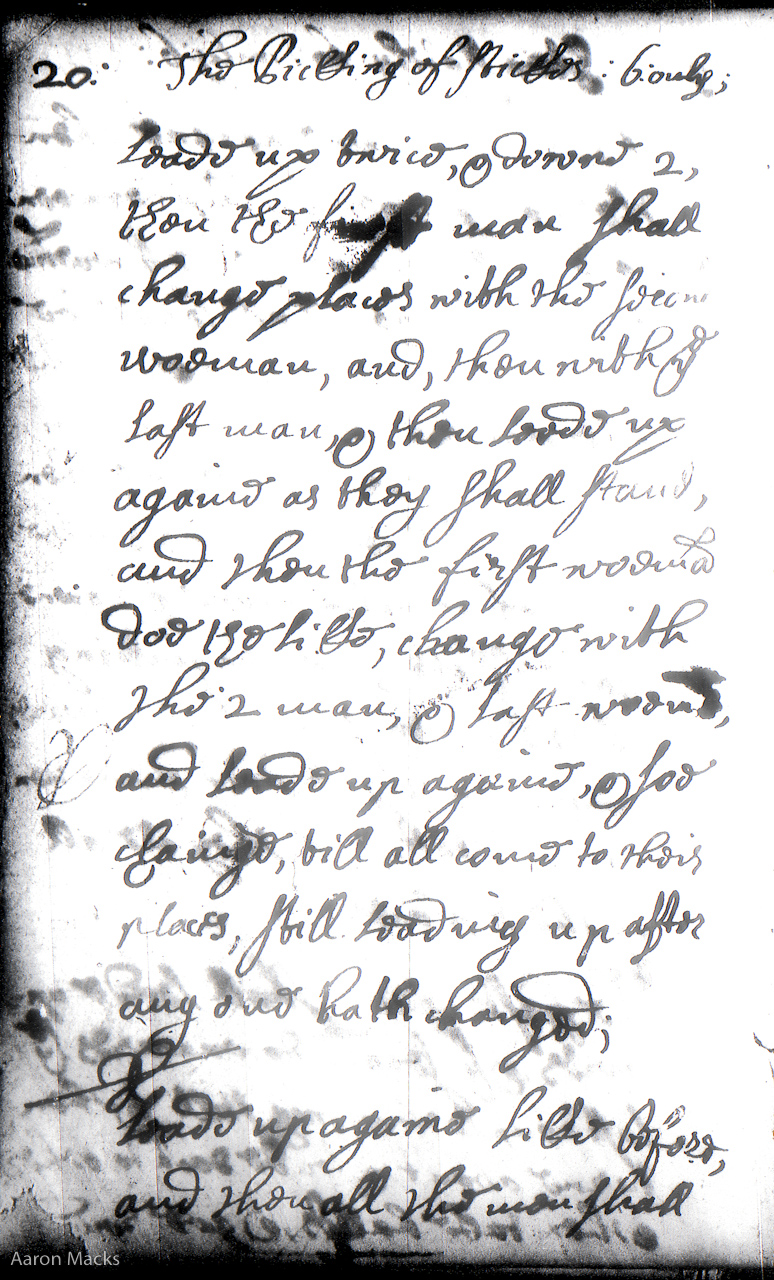 20: The Pickling of stickes: 6: only;
leade up twice, & downe 2,
then the first man shall
change places with the secon
woeman, and, then with ye
last man, & then leade up
againe as they shall stand,
and then the first woemā
doe the like, change with
the 2 man, & last woem,
and leade up againe, & soe
chainge, till all come to their
places, still leading up after
any one hath changed;
leade up againe like before,
and then all the men shall
Aaron Macks